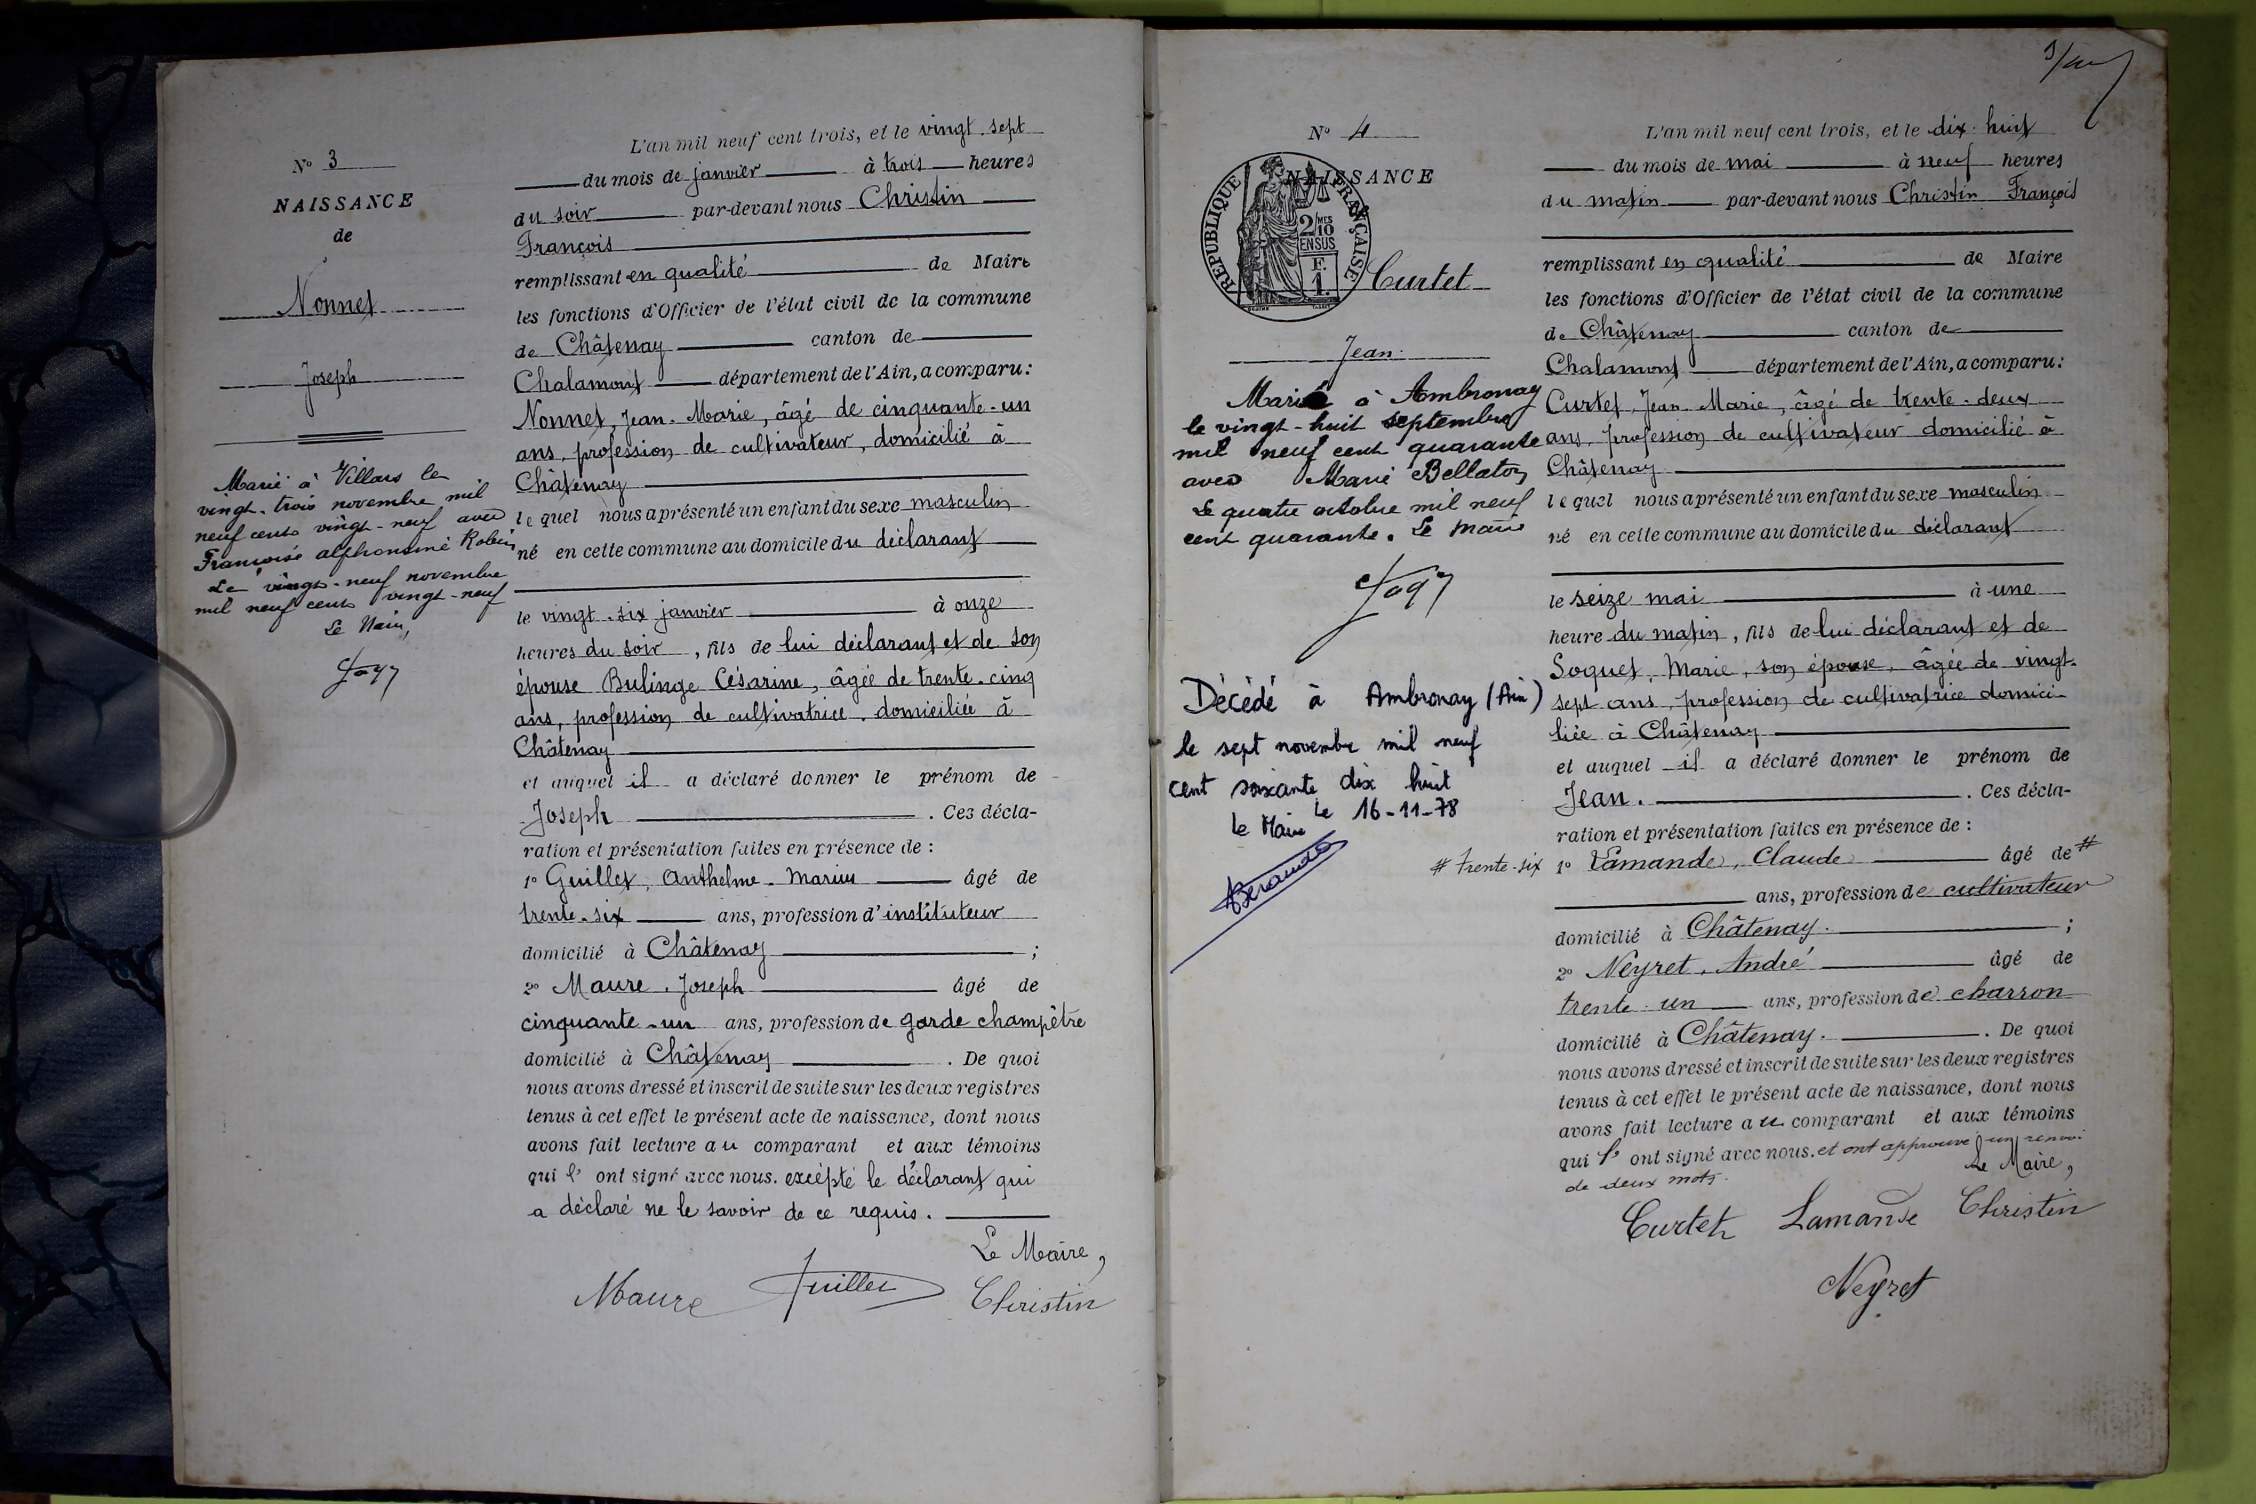 N° 3
NAISSANCE
de
Nonnet
Joseph
Marié à Villars le
vingt-trois novembre mil
neuf cent vingt-neuf avec
Françoise alphonsine Robin
Le vingt-neuf novembre
mil neuf cent vingt-neuf
Le Maire,
L'an mil neuf cent trois, et le vingt-sept
du mois de janvier à trois heures
du soir par-devant nous Christin
François
remplissant en qualité de Maire
les fonctions d'Officier de l'état civil de la commune
de Châtenay canton de
Chalamont département de l'Ain, a comparu:
Nonnet, Jean-Marie, âgé de cinquante-un
ans, profession de cultivateur, domicilié à
Châtenay
lequel nous a présenté un enfant du sexe masculin
né en cette commune au domicile du déclarant
le vingt-six janvier à onze
heures du soir, fils de lui déclarant et de son
épouse Bulinge Césarine, âgée de trente-cinq
ans, profession de cultivatrice, domiciliée à
Châtenay
et auquel il a déclaré donner le prénom de
Joseph. Ces décla-
ration et présentation faites en présence de:
1° Guillet, Anthelme-Marius âgé de
trente-six ans, profession d'instituteur
domicilié à Châtenay;
2° Maure. Joseph âgé de
cinquante-un ans, profession de garde champêtre
domicilié à Châtenay. De quoi
nous avons dressé et inscrit de suite sur les deux registres
tenus à cet effet le présent acte de naissance, dont nous
avons fait lecture au comparant et aux témoins
qui l' ont signé avec nous. excépté le déclarant qui
a déclaré ne le savoir de ce requis.
Le Maire,
Maure Guillet Christin
N° 4
NAISSANCE
RÉPUBLIQUE FRANÇAISE
2/10
MES
EN SUS
F.
1.
Curtet
Jean.
Marié à Ambronay
le vingt-huit septembre
mil neuf cent quarante
avec Marie Bellaton
Le quatre octobre mil neuf
cent quarante. Le Maire
Décédé à Ambronay (Ain)
le sept novembre mil neuf
cent soixante dix huit
Le Maire Le 16-11-78
# trente-six
L'an mil neuf cent trois, et le dix-huit
du mois de mai à neuf heures
du matin par-devant nous Christin François
remplissant en qualité de Maire
les fonctions d'Officier de l'état civil de la commune
de Châtenay canton de
Chalamont département de l'Ain, a comparu:
Curtet, Jean Marie, âgé de trente-deux
ans, profession de cultivateur domicilié à
Châtenay
lequel nous a présenté un enfant du sexe masculin
né en cette commune au domicile du déclarant
le seize mai à une
heure du matin, fils de lui déclarant et de
Soquet, Marie, son épouse, âgée de vingt-
sept ans, profession de cultivatrice domici-
liée à Châtenay
et auquel il a déclaré donner le prénom de
Jean. Ces décla-
ration et présentation faites en présence de:
1° Lamande, Claude âgé de #
ans, profession de cultivateur
domicilié à Châtenay.;
2° Neyret, André âgé de
trente-un ans, profession de charron
domicilié à Châtenay. De quoi
nous avons dressé et inscrit de suite sur les deux registres
tenus à cet effet le présent acte de naissance, dont nous
avons fait lecture au comparant et aux témoins
qui l' ont signé avec nous. et ont approuvé un renvoi
de deux mots.
Le Maire,
Curtet Lamande Christin
Neyret